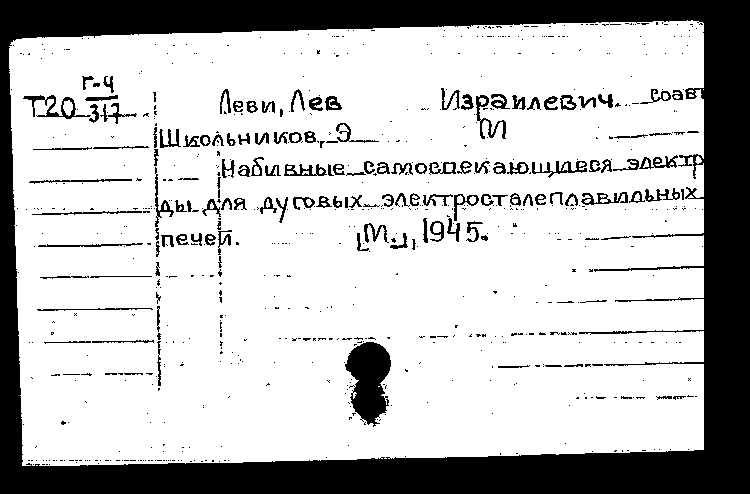 Г-4
Т20 317 Леви, Лев Израилевич соавт
Школьников, Э М
Набивные самоспекающиеся электр
ды для дуговых электросталеплавильных
печей. [М.], 1945.